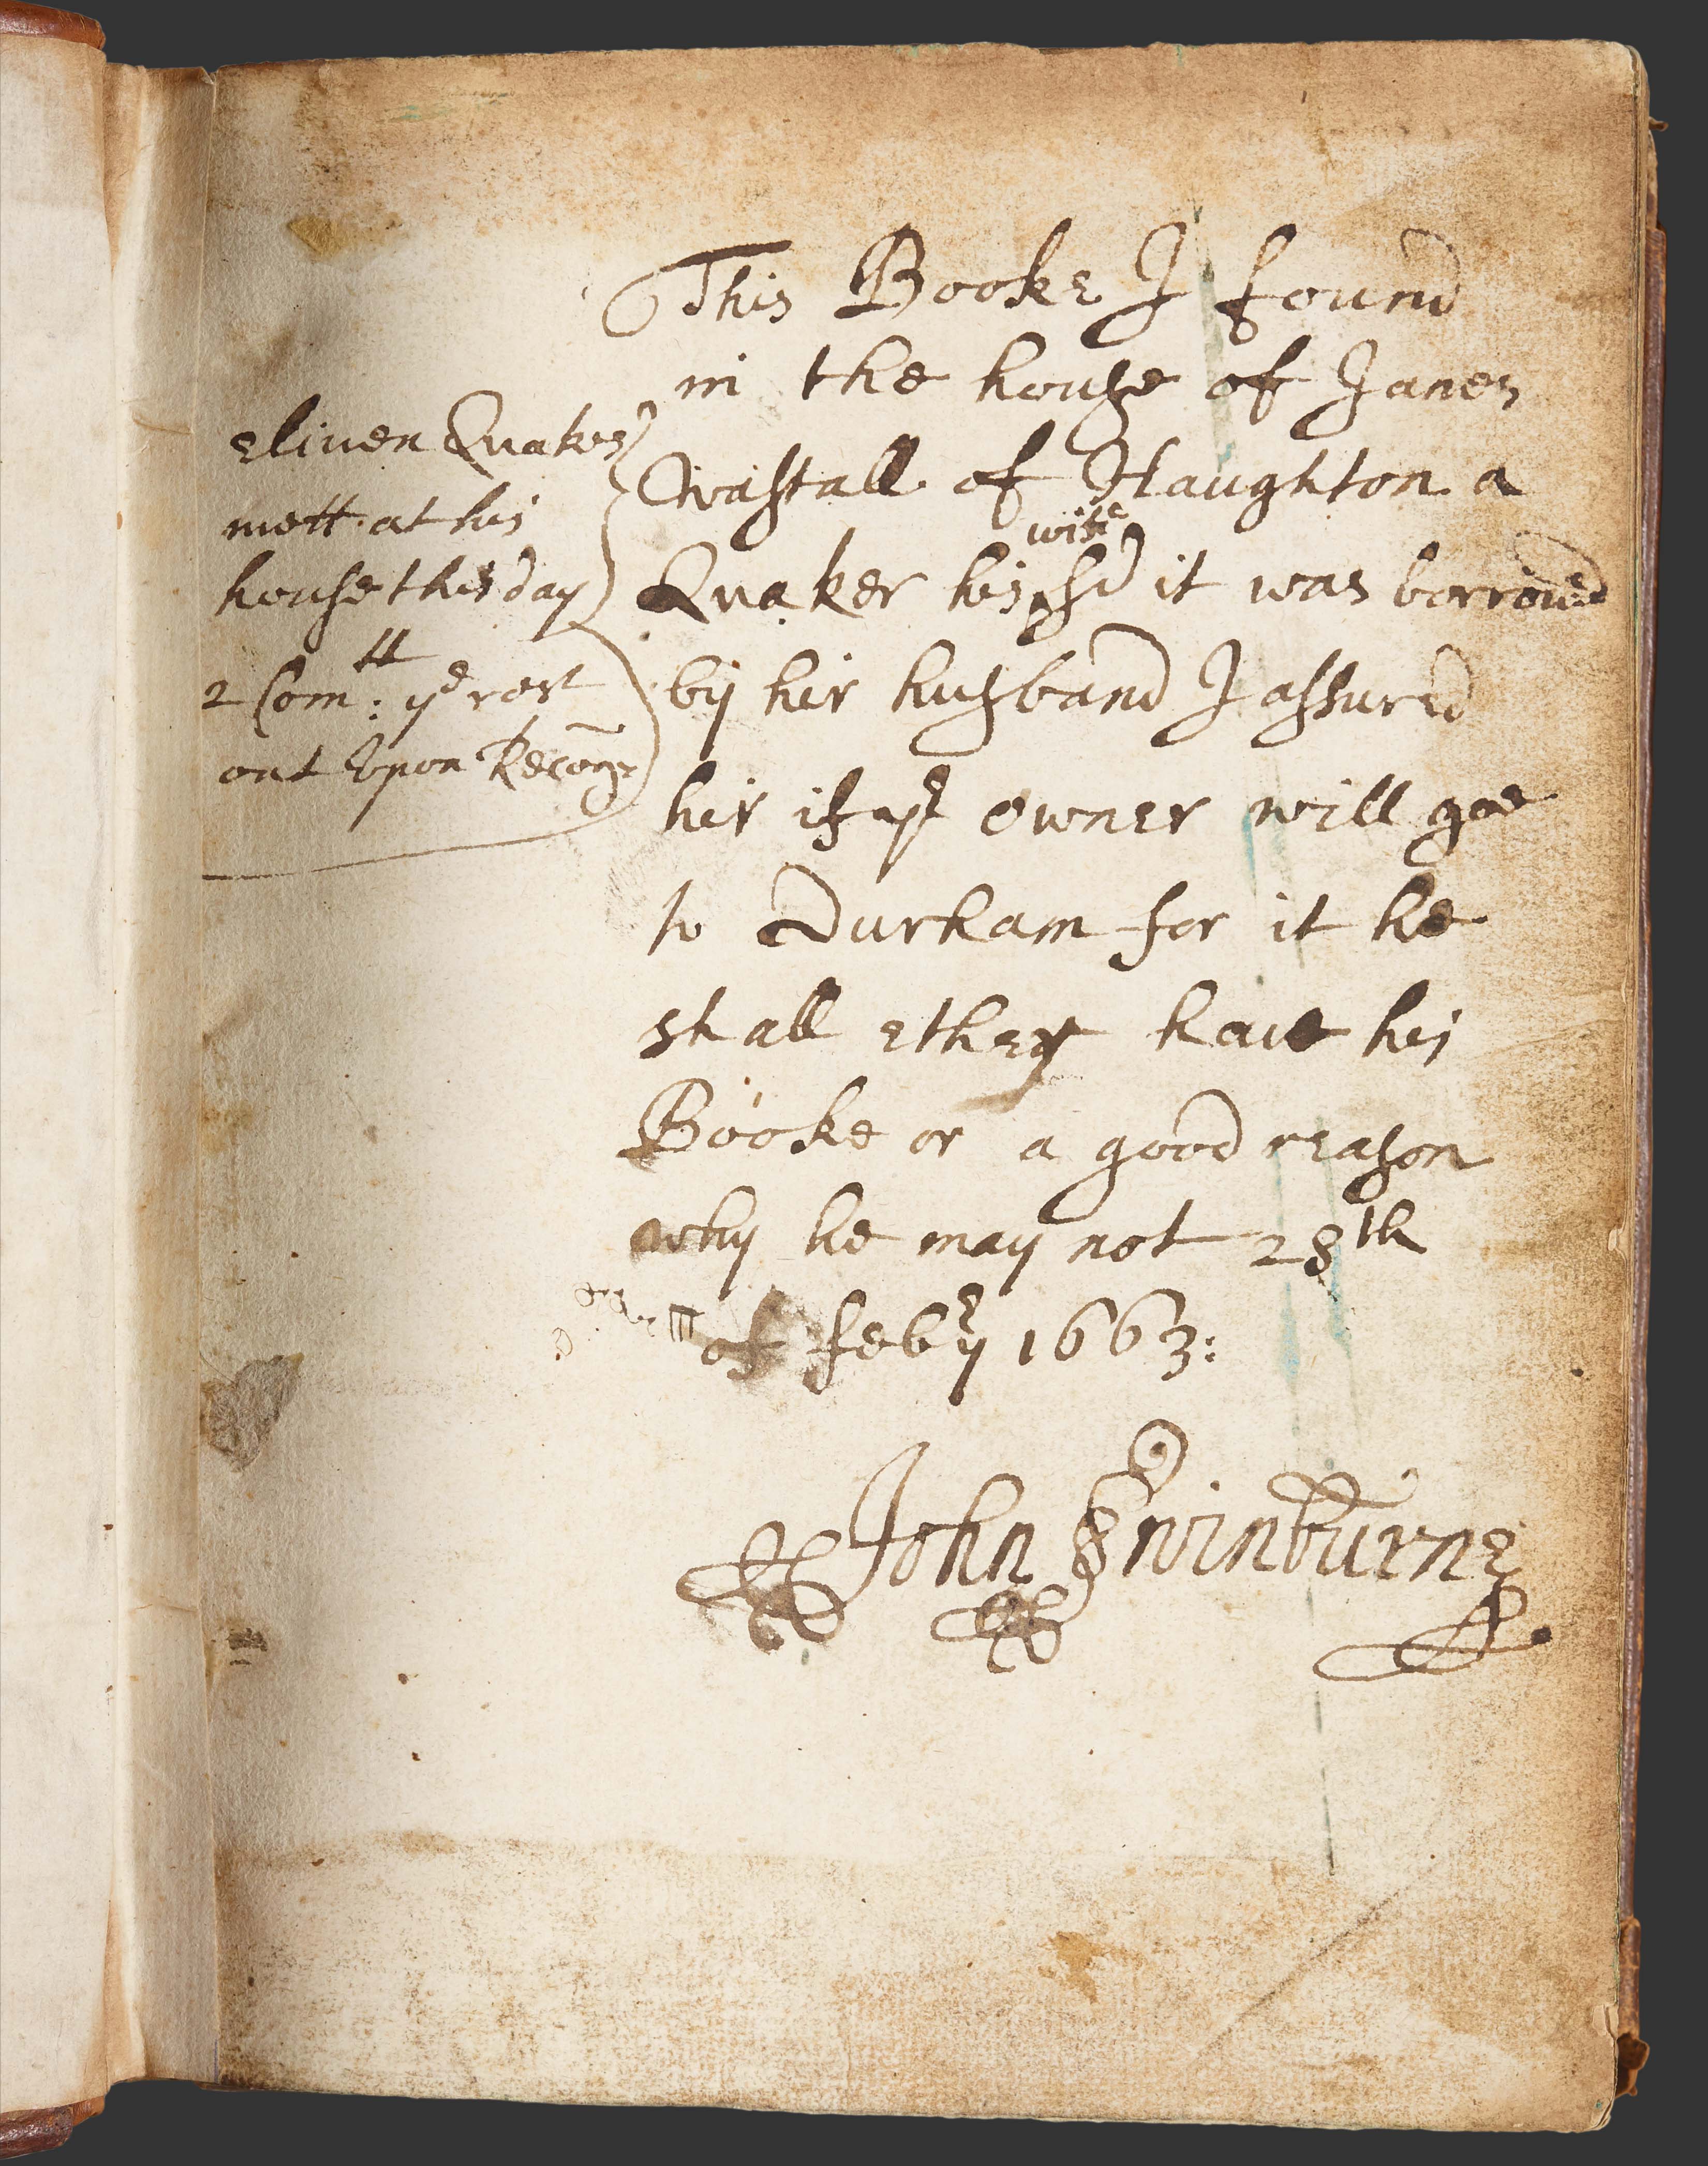 This Booke I found
in the house of Janes
Wastall of Haughton a
wife
Quaker his sd it was borrowed
by hir husband I assured
hir if ye owner will goe
to Durham for it he
shall ether have his
Booke or a good reason
why he may not 28th
of feb:ry 1663:
John Swinburne
eliuen Quakers
mett at his
house this day
2 Comtt: ye rest
out Upon Recong